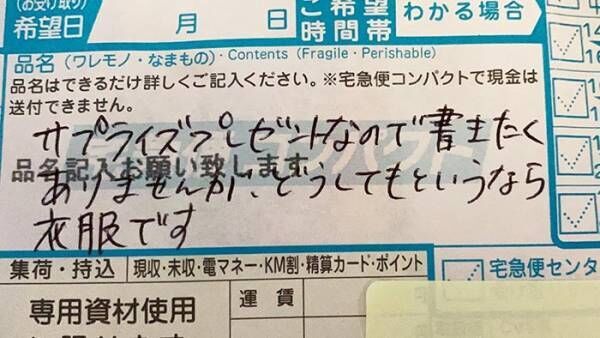 (お受け取り)
希望日 月 日
ご希望
時間帯
わかる場合
品名(ワレモノ・なまもの)・Contents (Fragile・Perishable)
品名はできるだけ詳しくご記入ください。※宅急便コンパクトで現金は
送付できません。
サプライズプレゼントなので書きたく
品名記入お願い致します
ありませんが、どうしてもというなら
衣服です
集荷・持込 現収・未収・電マネー・KM割・精算カード・ポイント
宅急便センタ
専用資材使用
運賃